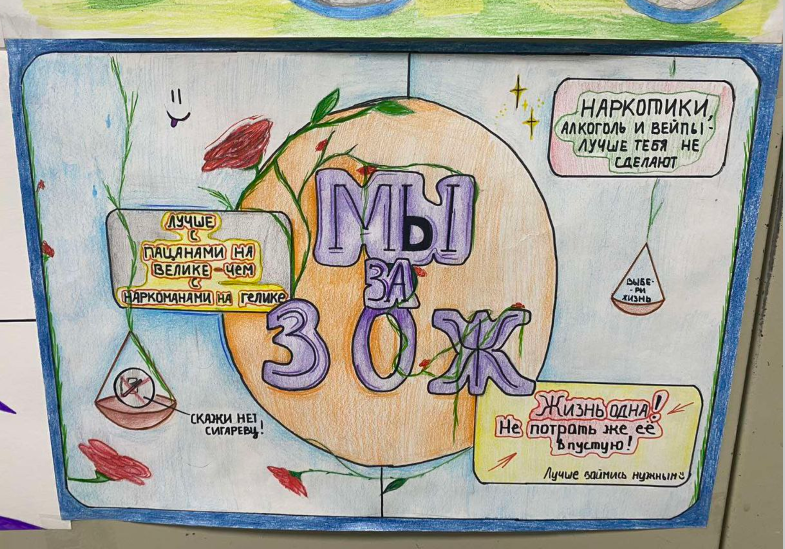 НАРКОТИКИ,
АЛКОГОЛЬ И ВЕЙПЫ -
ЛУЧШЕ ТЕБЯ НЕ
СДЕЛАЮТ
МЫ
ЗА
ЗОЖ
ЛУЧШЕ
С
ПАЦАНАМИ НА
ВЕЛИКЕ - ЧЕМ
С
НАРКОМАНАМИ НА ГЕЛИКЕ
ВЫБЕ-
-РИ
ЖИЗНЬ
СКАЖИ НЕТ
СИГАРЕЦУ!
Жизнь одна!
Не потрать же её
впустую!
Лучше займись нужным